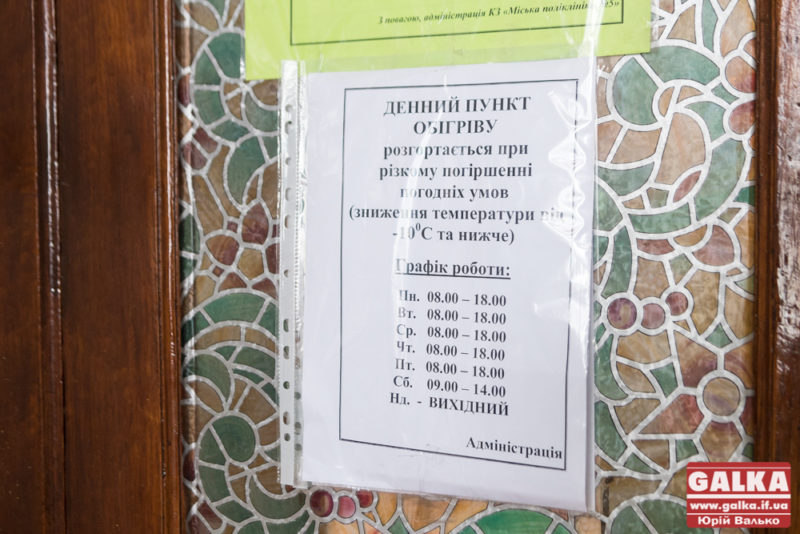 З повагою, адміністрація КЗ «Міська поліклініка №5»
ДЕННИЙ ПУНКТ
ОБІГРІВУ
розгортається при
різкому погіршенні
погодніх умов
(зниження температури від
-10⁰С та нижче)
Графік роботи:
Пн. 08.00 – 18.00
Вт. 08.00 – 18.00
Ср. 08.00 – 18.00
Чт. 08.00 – 18.00
Пт. 08.00 – 18.00
Сб. 09.00 – 14.00
Нд. - ВИХІДНИЙ
Адміністрація
GALKA
www.galka.if.ua
Юрій Валько